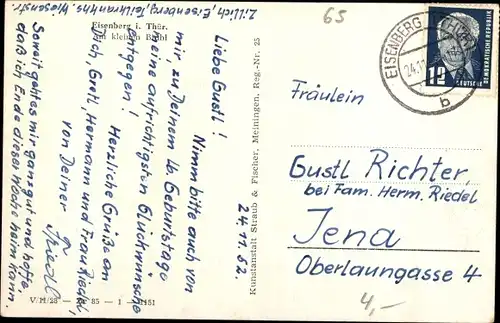 Z. Ullich, Eisenberg, Tallkrankhs, Wiesenstr.
Eisenberg i. Thür.
am kleinen Brühl
24.11.52
Liebe Gustl!
Nimm bitte auch von
mir zu Deinem lb. Geburtstage
meine aufrichtigsten Glückwünsche
entgegen!
Herzliche Grüße an
Dich, Gustl, Hermann und Frau Riedel,
von Deiner
Friedl
Soweit geht es mir ganz gut und hoffe,
daß ich Ende dieser Woche heim kann.
V/11/28 85 - 1
Kunstanstalt Straub & Fischer, Meiningen, Reg.-Nr. 25
65
EISENBERG
24.11
b
12
DEUTSCHE
DEMOKRATISCHE REPUBLIK
Fräulein
Gustl Richter,
bei Fam. Herm. Riedel
Jena
Oberlaungasse 4
4,-